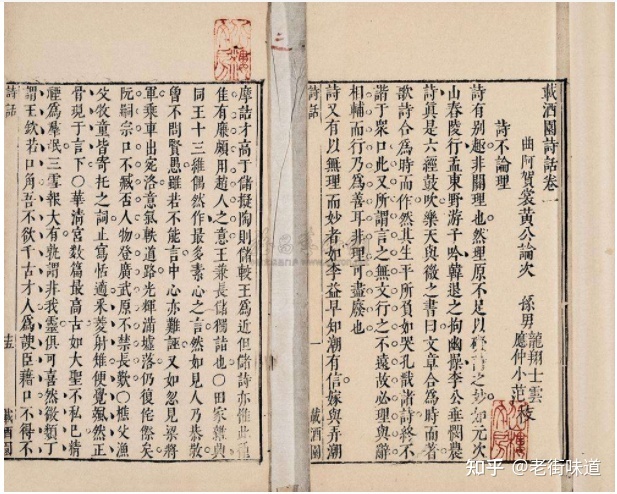 載酒園詩話卷一
曲阿賀裳黃公論次 孫男龍翔士雲應仲小范校
詩不論理
詩有别趣非關理也然理原不足以礙詩之妙如元次
山舂陵行孟東野游子吟韓退之拘幽操李公垂憫農
詩真是六經鼓吹樂天與微之書曰文章合為時而著
歌詩合為時而作然其生平所負如哭孔戡諸詩終不
諧于衆口此又所謂言之無文行之不遠故必理與辭
相輔而行乃為善耳非理可盡廢也
詩又有以無理而妙者如李益早知潮有信嫁與弄潮
詩話 一 載酒園
摩詰才高于儲擬陶則儲較王為近但儲詩亦惟此種
佳有廉頗用趙人之意王兼長儲獨詣也○田家雜興
同王十三維偶然作最多素心之言然如見人乃恭敬
曾不問賢愚雖若不能言中心亦難誣又如忽見梁將
軍乘車出宛洛意氣軼道路光輝滿墟落仍復侘傺矣
阮嗣宗口不臧否人物登廣武原不禁長歎○樵父漁
父牧童皆寄托之詞止寫恬適采菱射雉便覺颯然正
骨現于言下○華清宮數篇最高古如大聖不私己精
禋為羣氓三雪報大有孰謂非我靈俱可喜然欲類丁
謂王欽若口角吾不欲千古才人為諛臣藉口不得不
詩話 載酒園
知乎 @老街味道